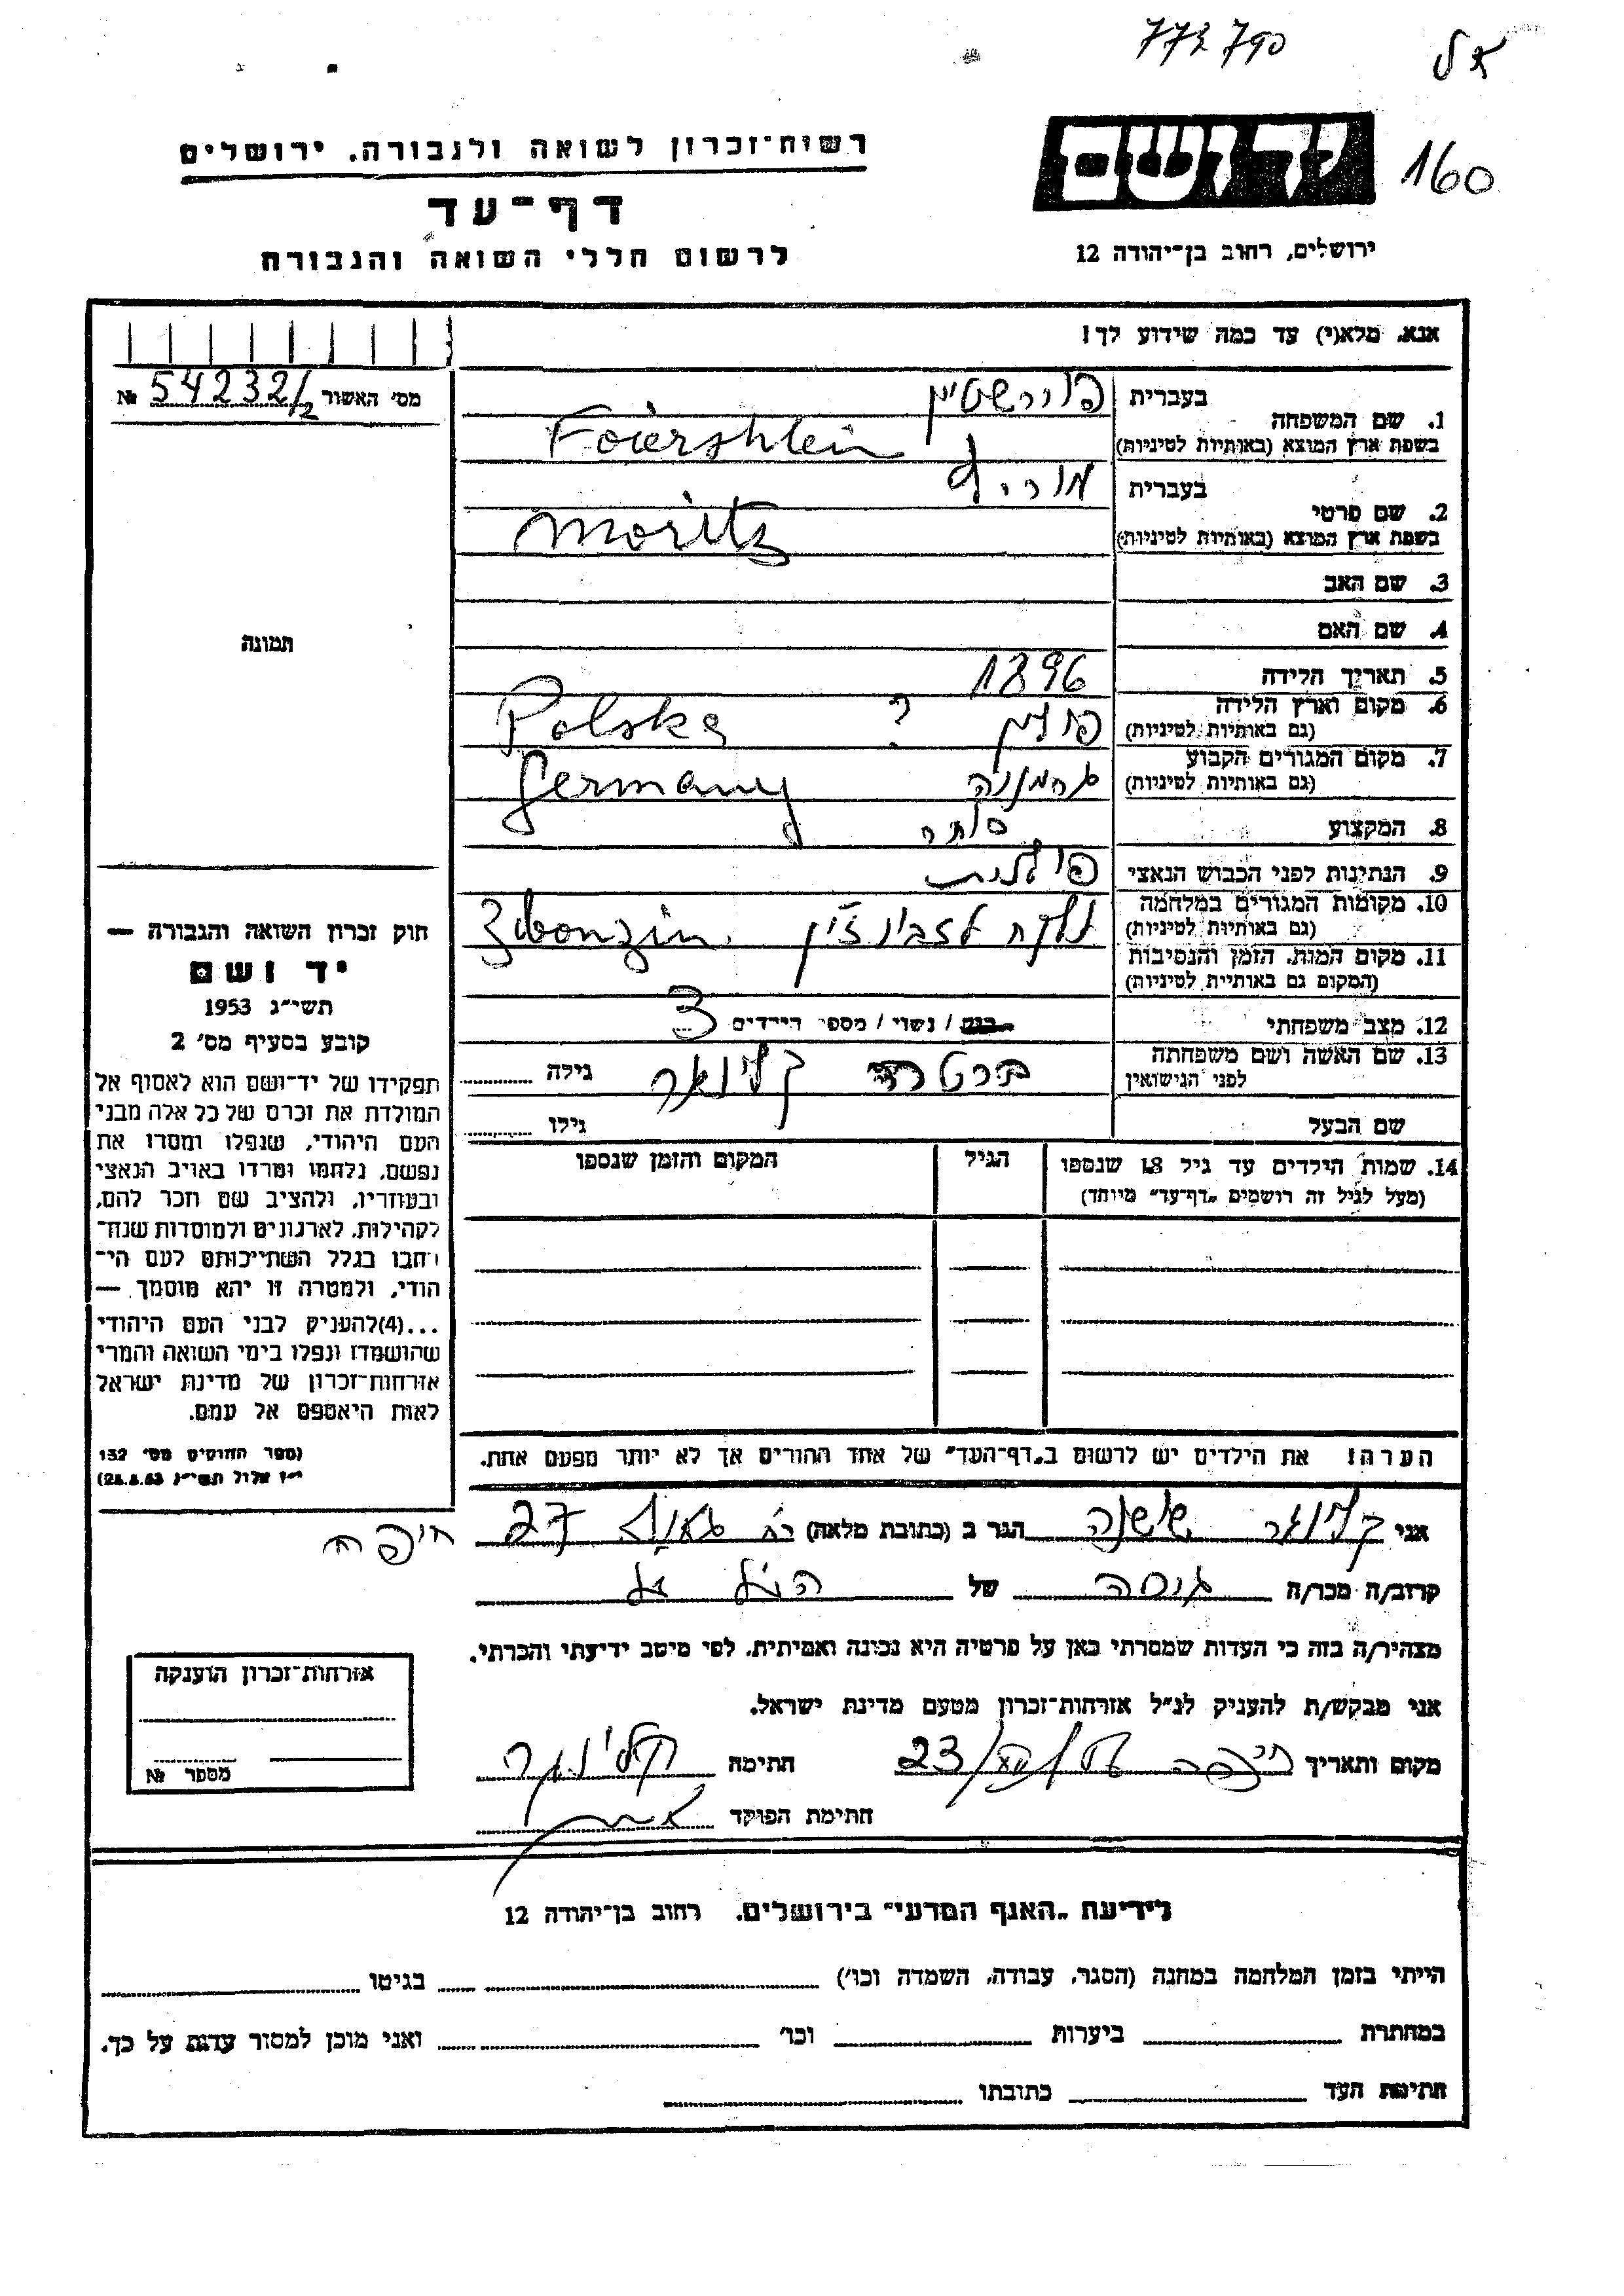 773790
160
יד ושם
ירושלים, רחוב בן־יהודה 12
רשות־זכרון לשואה ולגבורה, ירושלים
דף־עד
לרשום חללי השואה והגבורה
אנא, מלא(י) עד כמה שידוע לך!
מס׳ האשור 54232/2 №
תמונה
1. שם המשפחה בעברית פוירשטיין
בשפת ארץ המוצא (באותיות לטיניות) Foiershtein
2. שם פרטי בעברית מוריץ
בשפת ארץ המוצא (באותיות לטיניות) Moritz
3. שם האב
4. שם האם
5. תאריך הלידה 1896
6. מקום וארץ הלידה פולין ? Polska
(גם באותיות לטיניות)
7. מקום המגורים הקבוע גרמניה Germany
(גם באותיות לטיניות)
8. המקצוע סוחר
9. הנתינות לפני הכבוש הנאצי פולנית
10. מקומות המגורים במלחמה נלקח לזבונזין Zbonzin
(גם באותיות לטיניות)
11. מקום המות, הזמן והנסיבות
(המקום גם באותיית לטיניות)
12. מצב משפחתי רווק / נשוי / מספר הילדים 3
13. שם האשה ושם משפחתה ברטה קלינגר גילה
לפני הנישואין
שם הבעל גילו
14. שמות הילדים עד גיל 18 שנספו הגיל המקום והזמן שנספו
(מעל לגיל זה רושמים „דף־עד״ מיוחד)
הערה! את הילדים יש לרשום ב„דף־העד״ של אחד ההורים אך לא יותר מפעם אחת.
חוק זכרון השואה והגבורה —
יד ושם
תשי״ג 1953
קובע בסעיף מס׳ 2
תפקידו של יד־ושם הוא לאסוף אל
המולדת את זכרם של כל אלה מבני
העם היהודי, שנפלו ומסרו את
נפשם, נלחמו ומרדו באויב הנאצי
ובעוזריו, ולהציב שם וזכר להם,
לקהילות, לארגונים ולמוסדות שנח־
רבו בגלל השתייכותם לעם הי־
הודי, ולמטרה זו יהא מוסמך —
...(4)להעניק לבני העם היהודי
שהושמדו ונפלו בימי השואה והמרי
אזרחות־זכרון של מדינת ישראל
לאות היאספם אל עמם.
(ספר החוקים מס׳ 132
י״ז אלול תשי״ג 28.8.53)
אני קלינגר שושנה הגר ב (כתובת מלאה) 27 חיפה
קרוב/ה מכר/ה גיסה של הנ״ל
מצהיר/ה בזה כי העדות שמסרתי כאן על פרטיה היא נכונה ואמיתית, לפי מיטב ידיעתי והכרתי.
אני מבקש/ת להעניק לנ״ל אזרחות־זכרון מטעם מדינת ישראל.
מקום ותאריך חיפה 23 חתימה קלינגר
חתימת הפוקד
אזרחות־זכרון הוענקה
מספר №
לידיעת „האגף המדעי״ בירושלים, רחוב בן־יהודה 12
הייתי בזמן המלחמה במחנה (הסגר, עבודה, השמדה וכו׳) בגיטו
במחתרת ביערות וכו׳ ואני מוכן למסור עדות על כך.
חתימת העד כתובתו